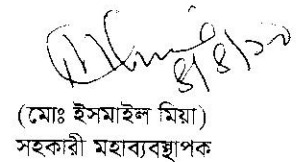 (মোঃ ইসমাইল মিয়া)
সহকারী মহাব্যবস্থাপক